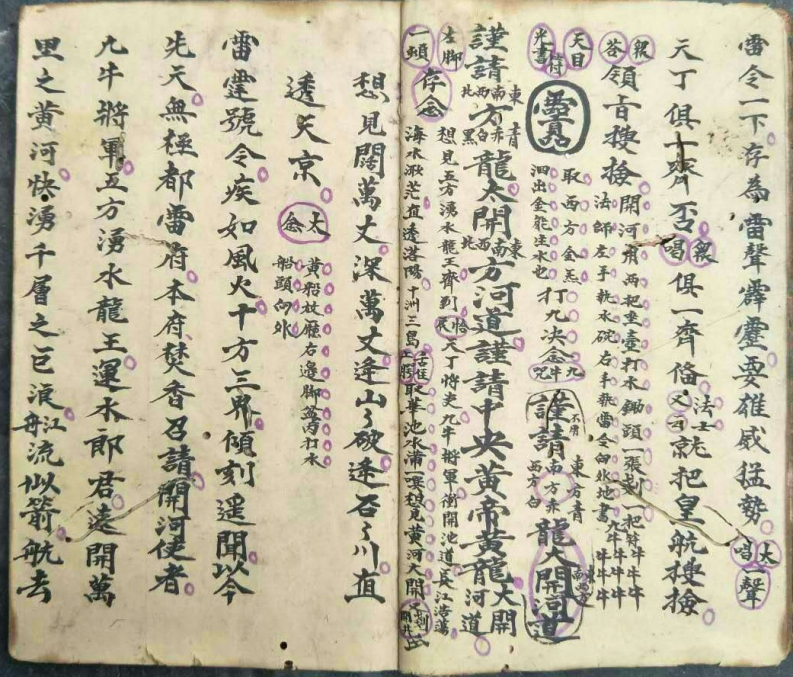 雷令一下存為雷聲霹靂要雄威猛勢 大唱一聲
天丁俱一齊否 眾唱 俱一齊俻 又云 法士 就把皇航搜撿
眾荅 領旨搜撿 開河用兩把壶打水鋤頭一張
法師左手執水碗右手執雷令向水地書九牛牛牛牛牛牛
天目 取西方金炁 打九决念 九牛咒 謹請 東方青 南方赤 西方白 龍大開河道
光書符 泗出金能生水也
謹請 東南西北方 青赤白黑龍大開 東南西北方河道謹請中央黃帝黃龍大開河道
左脚 想見五方湧水龍王齊到 天丁將吏九牛將軍衝開池道長江浩蕩
一頭 存念 海水淼茫直透洛陽十洲三島 取華池水 想見黃河大開
想見闊萬丈深萬丈逢山〻破逢石〻川直
透天京 大念 黃船 廳右邊脚 打水
船頭向外
雷霆號令疾如風火十方三界傾刻遥聞以今
先天無極都雷府本府焚香召請開河使者
九牛將軍五方湧水龍王運水郎君速開萬
里之黃河快湧千層之巨浪江船流似箭航去